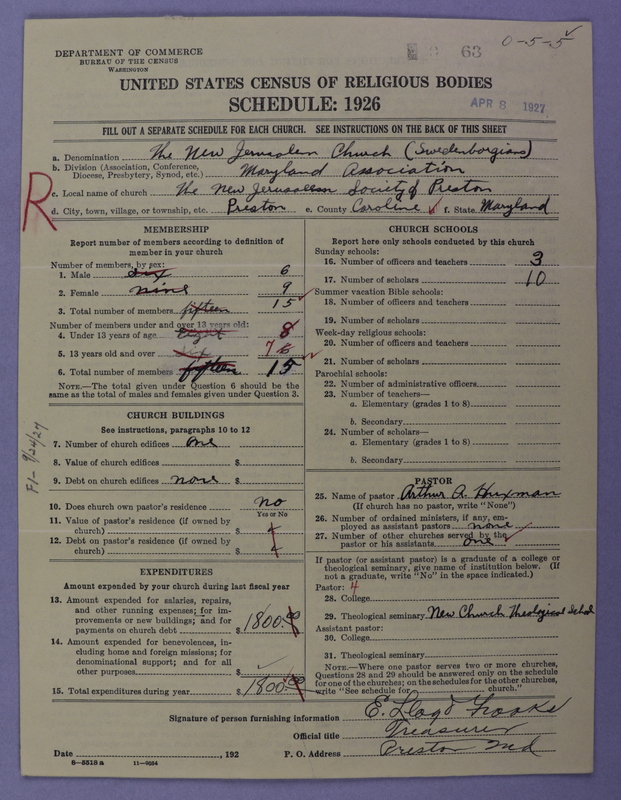 0-5-5
63
DEPARTMENT OF COMMERCE
BUREAU OF THE CENSUS
WASHINGTON
UNITED STATES CENSUS OF RELIGIOUS BODIES
SCHEDULE: 1926
APR 8 1927
FILL OUT A SEPARATE SCHEDULE FOR EACH CHURCH. SEE INSTRUCTIONS ON THE BACK OF THIS SHEET
R
a. Denomination The New Jerusalem Church (Swedenborgians)
b. Division (Association, Conference, Diocese, Presbytery, Synod, etc.) Maryland Association
c. Local name of church The New Jerusalem Society of Preston
d. City, town, village, or township, etc. Preston e. County Caroline f. State Maryland
MEMBERSHIP
Report number of members according to definition of
member in your church
Number of members, by sex:
1. Male six 6
2. Female nine 9
3. Total number of members fifteen 15
Number of members under and over 13 years old:
4. Under 13 years of age eight 8
5. 13 years old and over six 7
6. Total number of members fifteen 15
NOTE.—The total given under Question 6 should be the
same as the total of males and females given under Question 3.
CHURCH BUILDINGS
See instructions, paragraphs 10 to 12
7. Number of church edifices one
8. Value of church edifices $
9. Debt on church edifices none $
F1- 9/24/27
10. Does church own pastor's residence no
Yes or No
11. Value of pastor's residence (if owned by
church) $
12. Debt on pastor's residence (if owned by
church) $
EXPENDITURES
Amount expended by your church during last fiscal year
13. Amount expended for salaries, repairs,
and other running expenses; for im-
provements or new buildings; and for
payments on church debt $1800.00
14. Amount expended for benevolences, in-
cluding home and foreign missions; for
denominational support; and for all
other purposes $
15. Total expenditures during year $1800.00
CHURCH SCHOOLS
Report here only schools conducted by this church
Sunday schools:
16. Number of officers and teachers 3
17. Number of scholars 10
Summer vacation Bible schools:
18. Number of officers and teachers
19. Number of scholars
Week-day religious schools:
20. Number of officers and teachers
21. Number of scholars
Parochial schools:
22. Number of administrative officers
23. Number of teachers—
a. Elementary (grades 1 to 8)
b. Secondary
24. Number of scholars—
a. Elementary (grades 1 to 8)
b. Secondary
PASTOR
25. Name of pastor Arthur A.
(If church has no pastor, write "None")
26. Number of ordained ministers, if any, em-
ployed as assistant pastors none
27. Number of other churches served by the
pastor or his assistants one
If pastor (or assistant pastor) is a graduate of a college or
theological seminary, give name of institution below. (If
not a graduate, write "No" in the space indicated.)
Pastor: 4
28. College
29. Theological seminary New Church Theological School
Assistant pastor:
30. College
31. Theological seminary
NOTE.—Where one pastor serves two or more churches,
Questions 28 and 29 should be answered only on the schedule
for one of the churches; on the schedules for the other churches,
write "See schedule for church."
Signature of person furnishing information E. Lloyd
Official title Treasurer
Date , 192 P. O. Address Preston Md
8—5518 a 11—9564